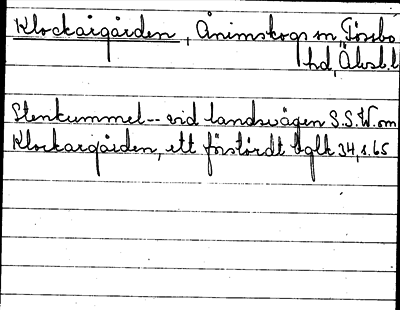 Klockargården, Ånimskogs sn Tössbo
hd, Älvsb.l
Stenkummel -- vid landsvägen S.S.W. om
Klockargården, ett förstördt bglt 34, s. 65